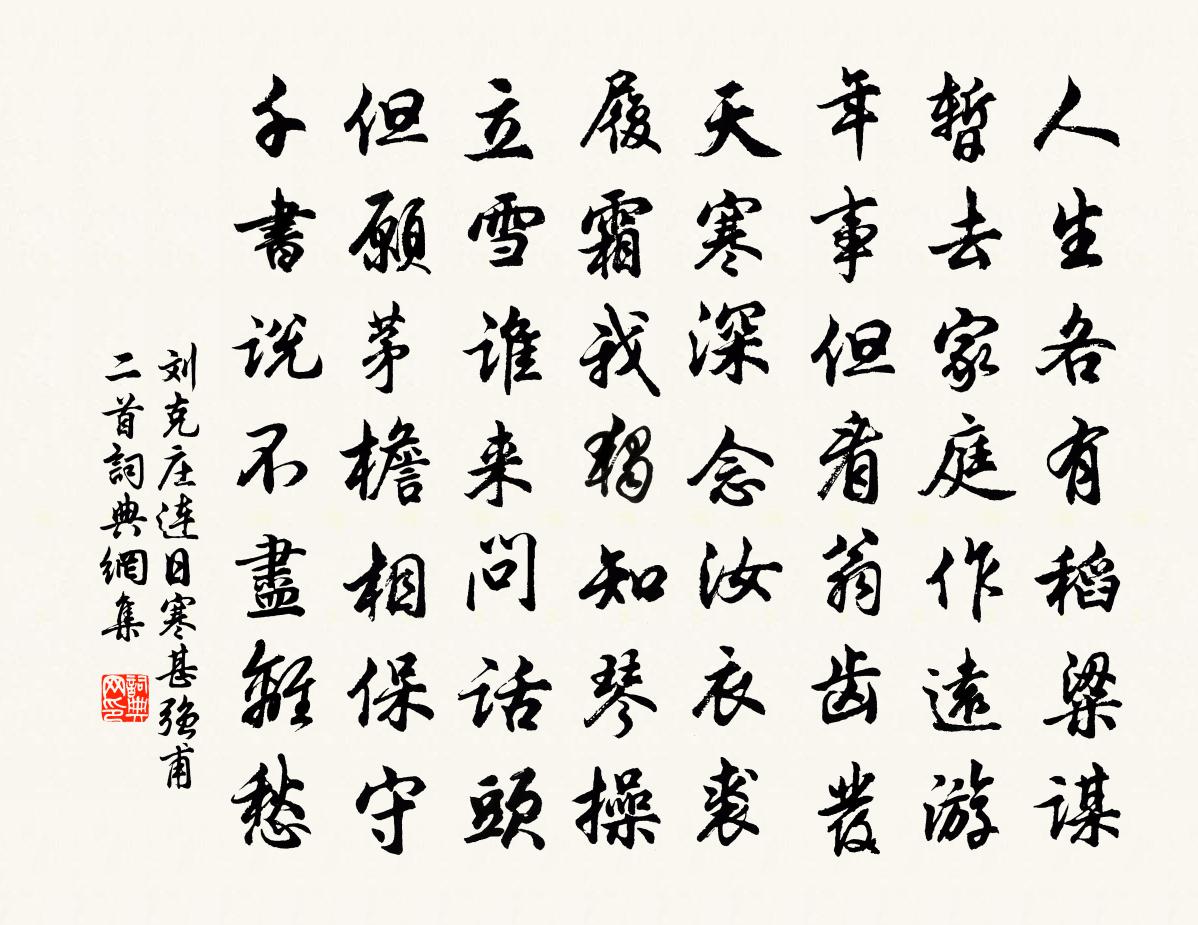 人生各有稻粱謀
暫去家庭作遠游
年事但看翁齿發
天寒深念汝衣裘
履霜我獨知琴操
立雪谁来問話頭
但願茅檐相保守
千書说不盡離愁
刘克庄连日寒甚强甫
二首詞典網集
詞典网印